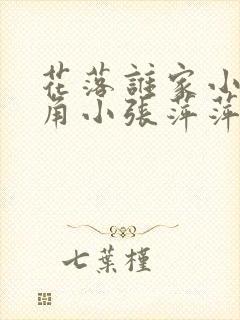 花落誰家小
角小張萍萍
七葉槿